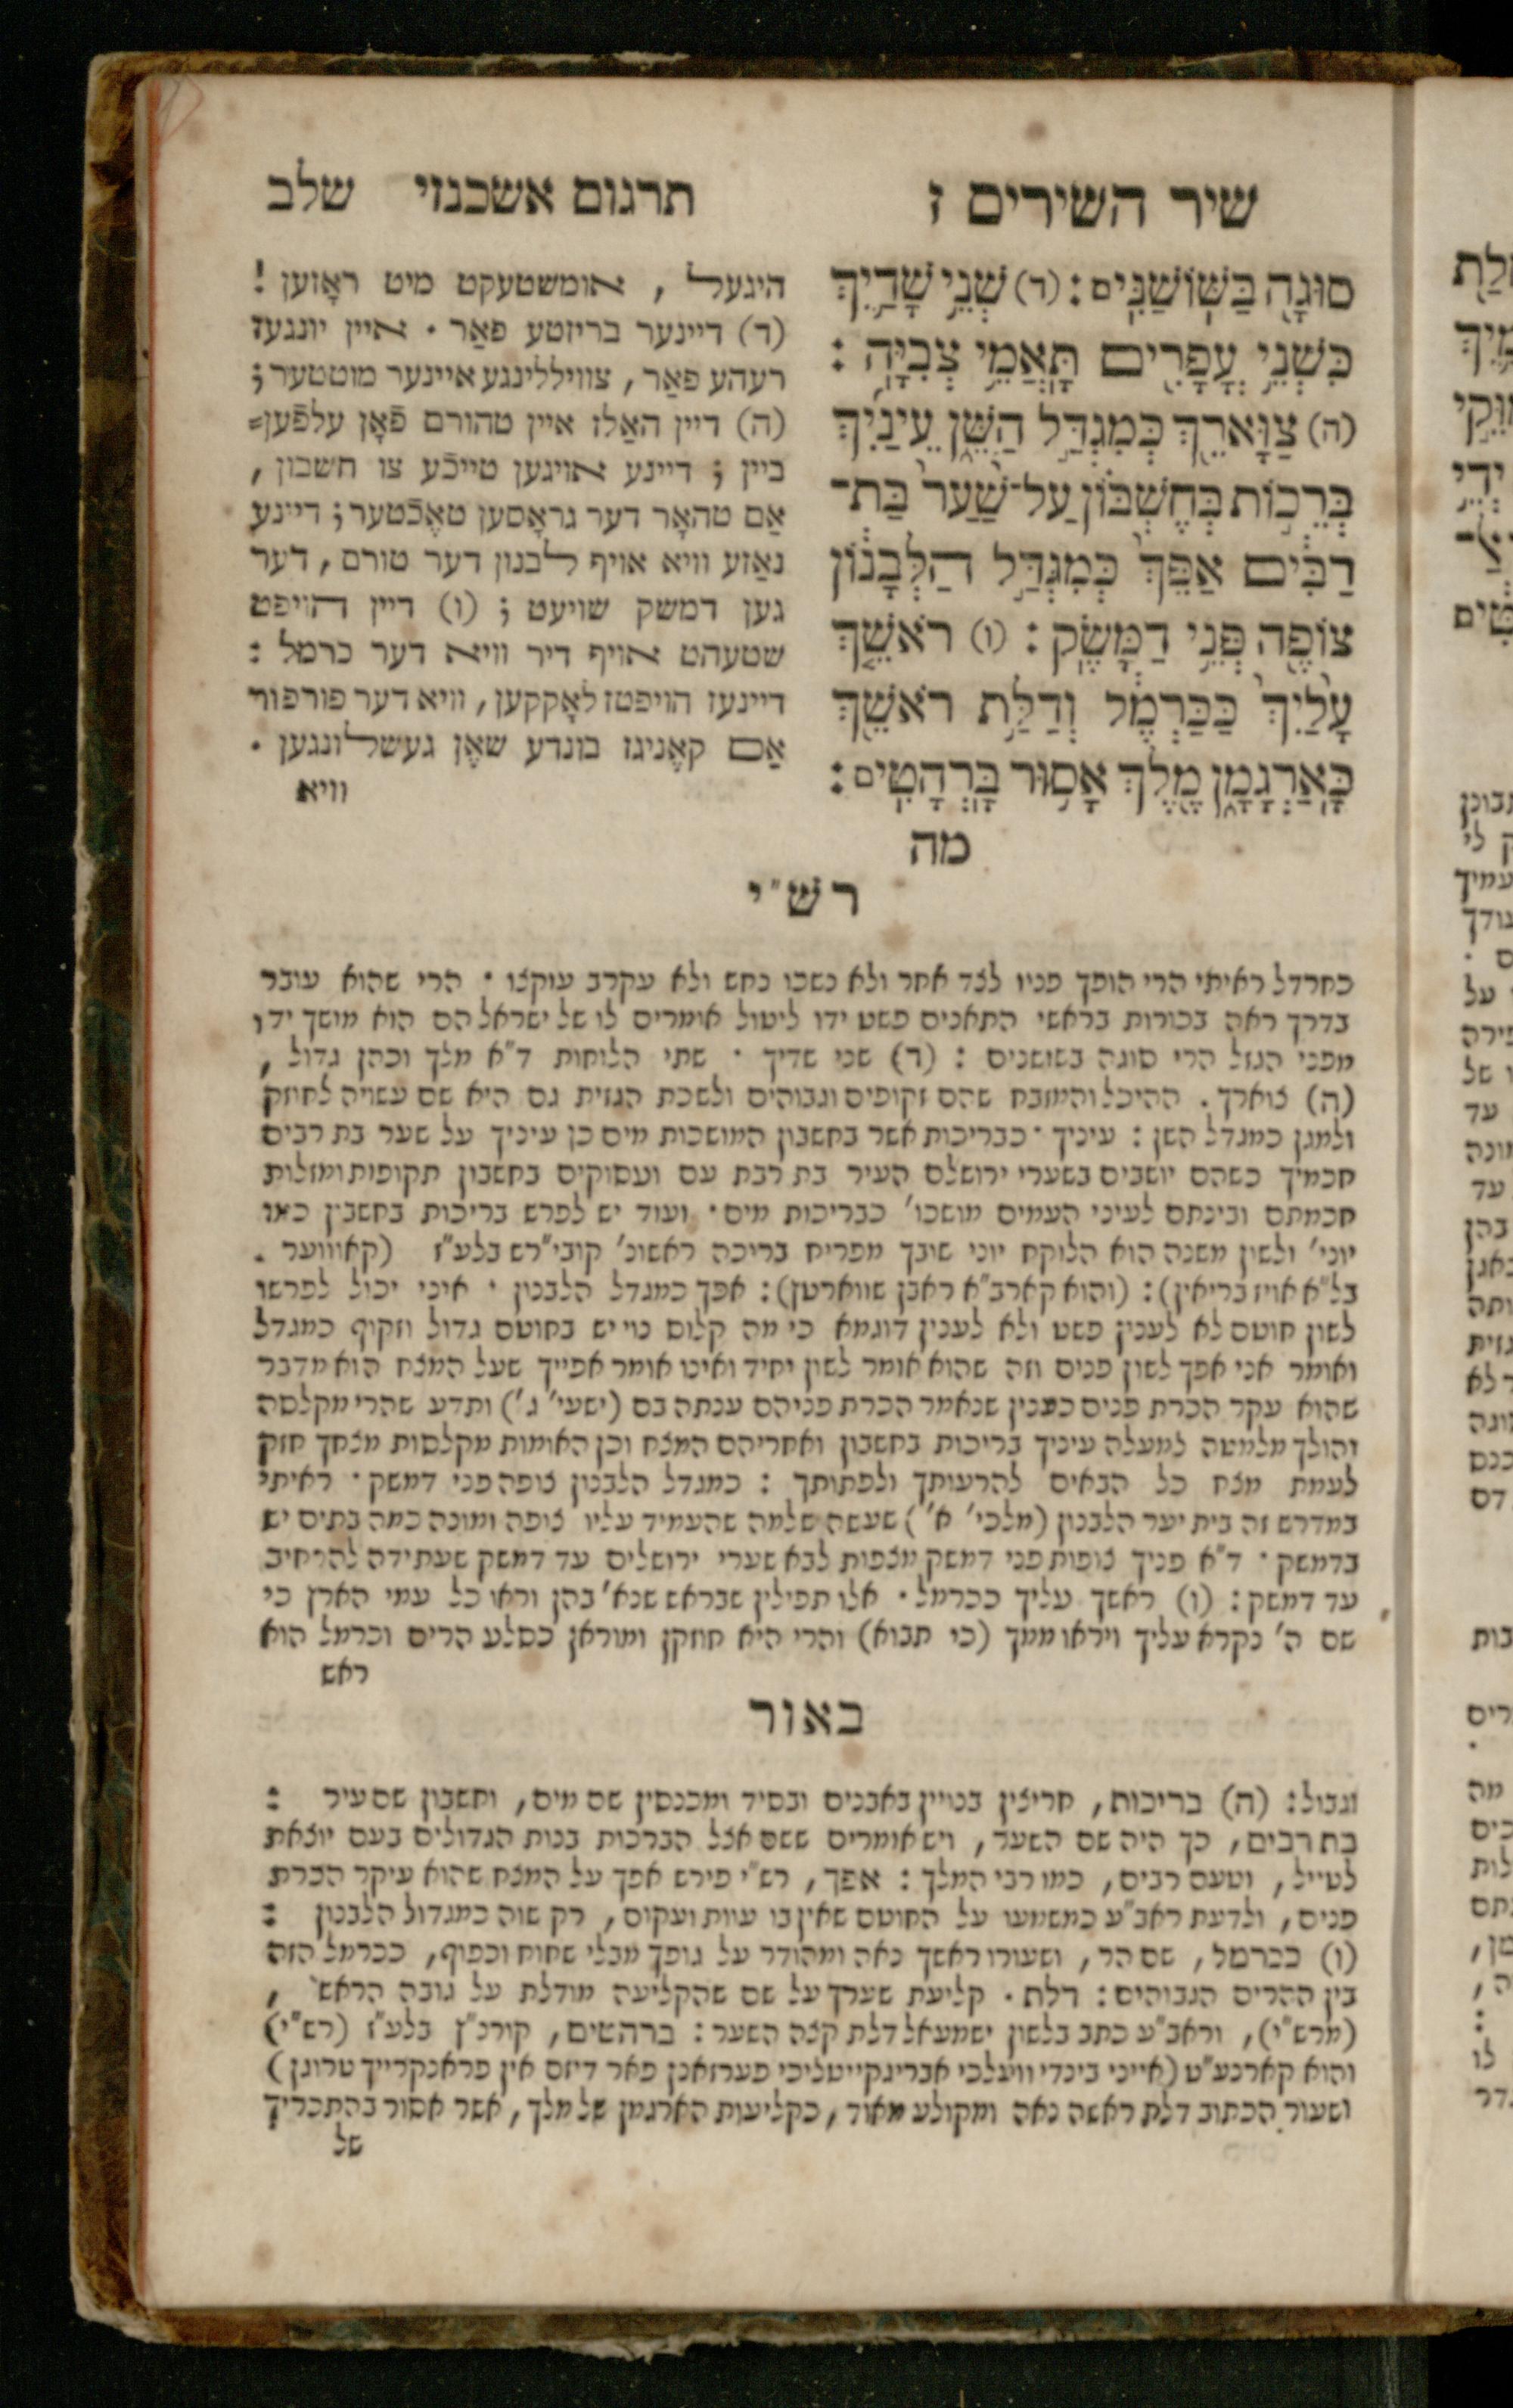 שיר השירים ז
תרגום אשכנזי שלב
סוּגָ֖ה בַּשּֽׁוֹשַׁנִּֽים׃ (ד) שְׁנֵ֥י שָׁדַ֛יִךְ
כִּשְׁנֵ֥י עֳפָרִ֖ים תָּאֳמֵ֥י צְבִיָּֽה׃
(ה) צַוָּארֵ֖ךְ כְּמִגְדַּ֣ל הַשֵּׁ֑ן עֵינַ֜יִךְ
בְּרֵכ֣וֹת בְּחֶשְׁבּ֗וֹן עַל־שַׁ֙עַר֙ בַּת־
רַבִּ֔ים אַפֵּךְ֙ כְּמִגְדַּ֣ל הַלְּבָנ֔וֹן
צוֹפֶ֖ה פְּנֵ֥י דַמָּֽשֶׂק׃ (ו) רֹאשֵׁ֤ךְ
עָלַ֙יִךְ֙ כַּכַּרְמֶ֔ל וְדַלַּ֥ת רֹאשֵׁ֖ךְ
כָּאַרְגָּמָ֑ן מֶ֖לֶךְ אָס֥וּר בָּרְהָטִֽים׃
מה
היגעל, אומשטעקט מיט ראָזען!
(ד) דיינער בריזטע פאַר. איין יונגעז
רעהע פאַר, צוויללינגע איינער מוטטער;
(ה) דיין האַלז איין טהורם פֿאָן עלפֿען=
ביין; דיינע אויגען טייכֿע צו חשבון,
אַם טהאָר דער גראָסען טאָכֿטער; דיינע
נאַזע וויא אויף לבנון דער טורם, דער
גען דמשק שויעט; (ו) דיין הויפט
שטעהט אויף דיר וויא דער כרמל:
דיינעז הויפטז לאָקקען, וויא דער פורפור
אַם קאָניגז בונדע שאָן געשלונגען.
וויא
רש"י
כחרדל ראיתי הרי הופך פניו לצד אחר ולא נשכו נחש ולא עקרב עוקצו. הרי שהוא עובר
בדרך ראה בכורות בראשי התאנים פשט ידו ליטול אומרים לו של ישראל הם הוא מושך ידו
מפני הגזל הרי סוגה בשושנים: (ד) שני שדיך. שתי הלוחות ד"א מלך וכהן גדול,
(ה) צוארך. ההיכל והמזבח שהם זקופים וגבוהים ולשכת הגזית גם היא שם עשויה לחוזק
ולמגן כמגדל השן: עיניך. כבריכות אשר בחשבון המושכות מים כן עיניך על שער בת רבים
חכמיך כשהם יושבים בשערי ירושלם העיר בת רבת עם ועסוקים בחשבון תקופות ומזלות
חכמתם ובינתם לעיני העמים מושכו' כבריכות מים. ועוד יש לפרש בריכות בחשבון כאו
יוני' ולשון משנה הוא הלוקח יוני שובך מפריח בריכה ראשונ' קובי"רש בלע"ז (קאווער.
בל"א אויז בריאין): (והוא קארב"א ראבן שווארטן): אפך כמגדל הלבנון. איני יכול לפרשו
לשון חוטם לא לענין פשט ולא לענין דוגמא כי מה קלוס נוי יש בחוטם גדול וזקוף כמגדל
ואומר אני אפך לשון פנים וזה שהוא אומר לשון יחיד ואינו אומר אפייך שעל המצח הוא מדבר
שהוא עקר הכרת פנים כענין שנאמר הכרת פניהם ענתה בם (ישעי' ג') ותדע שהרי מקלסה
והולך מלמטה למעלה עיניך בריכות בחשבון ואחריהם המצח וכן האומות מקלסות מצחך חזק
לעמת מצח כל הבאים להרעותך ולפתותך: כמגדל הלבנון צופה פני דמשק. ראיתי
במדרש זה בית יער הלבנון (מלכי' א') שעשה שלמה שהעמיד עליו צופה ומונה כמה בתים יש
בדמשק. ד"א פניך צופות פני דמשק מצפות לבא שערי ירושלים עד דמשק שעתידה להרחיב
עד דמשק: (ו) ראשך עליך ככרמל. אלו תפילין שבראש שנא' בהן וראו כל עמי הארץ כי
שם ה' נקרא עליך ויראו ממך (כי תבוא) והרי היא חוזקן ומוראן כסלע הרים וכרמל הוא
ראש
באור
וגבול: (ה) בריכות, חריצין בנויין באבנים ובסיד ומכנסין שם מים, וחשבון שם עיר:
בת רבים, כך היה שם השער, ויש אומרים ששם אצל הברכות בנות הגדולים בעם יוצאת
לטייל, וטעם רבים, כמו רבי המלך: אפך, רש"י פירש אפך על המצח שהוא עיקר הכרת
פנים, ולדעת ראב"ע כמשמעו על החוטם שאין בו עוות ועקום, רק שוה כמגדול הלבנון:
(ו) ככרמל, שם הר, ושעורו ראשך נאה ומהודר על גופך מבלי שחוח וכפוף, ככרמל הזה
בין ההרים הגבוהים: דלת. קליעת שערך על שם שהקליעה מודלת על גובה הראש,
(מרש"י), וראב"ע כתב בלשון ישמעאל דלת קצה השער: ברהטים, קורנ"ץ בלע"ז (רש"י)
והוא קארנע"ט (אייני בינדי וועלכי אברינקייטליכי פערזאנן פאר דיזם אין פראנקרייך טרוגן)
ושעור הכתוב דלת ראשה נאה ומקולע מאוד, כקליעות הארגמן של מלך, אשר אסור בהתכריך
של